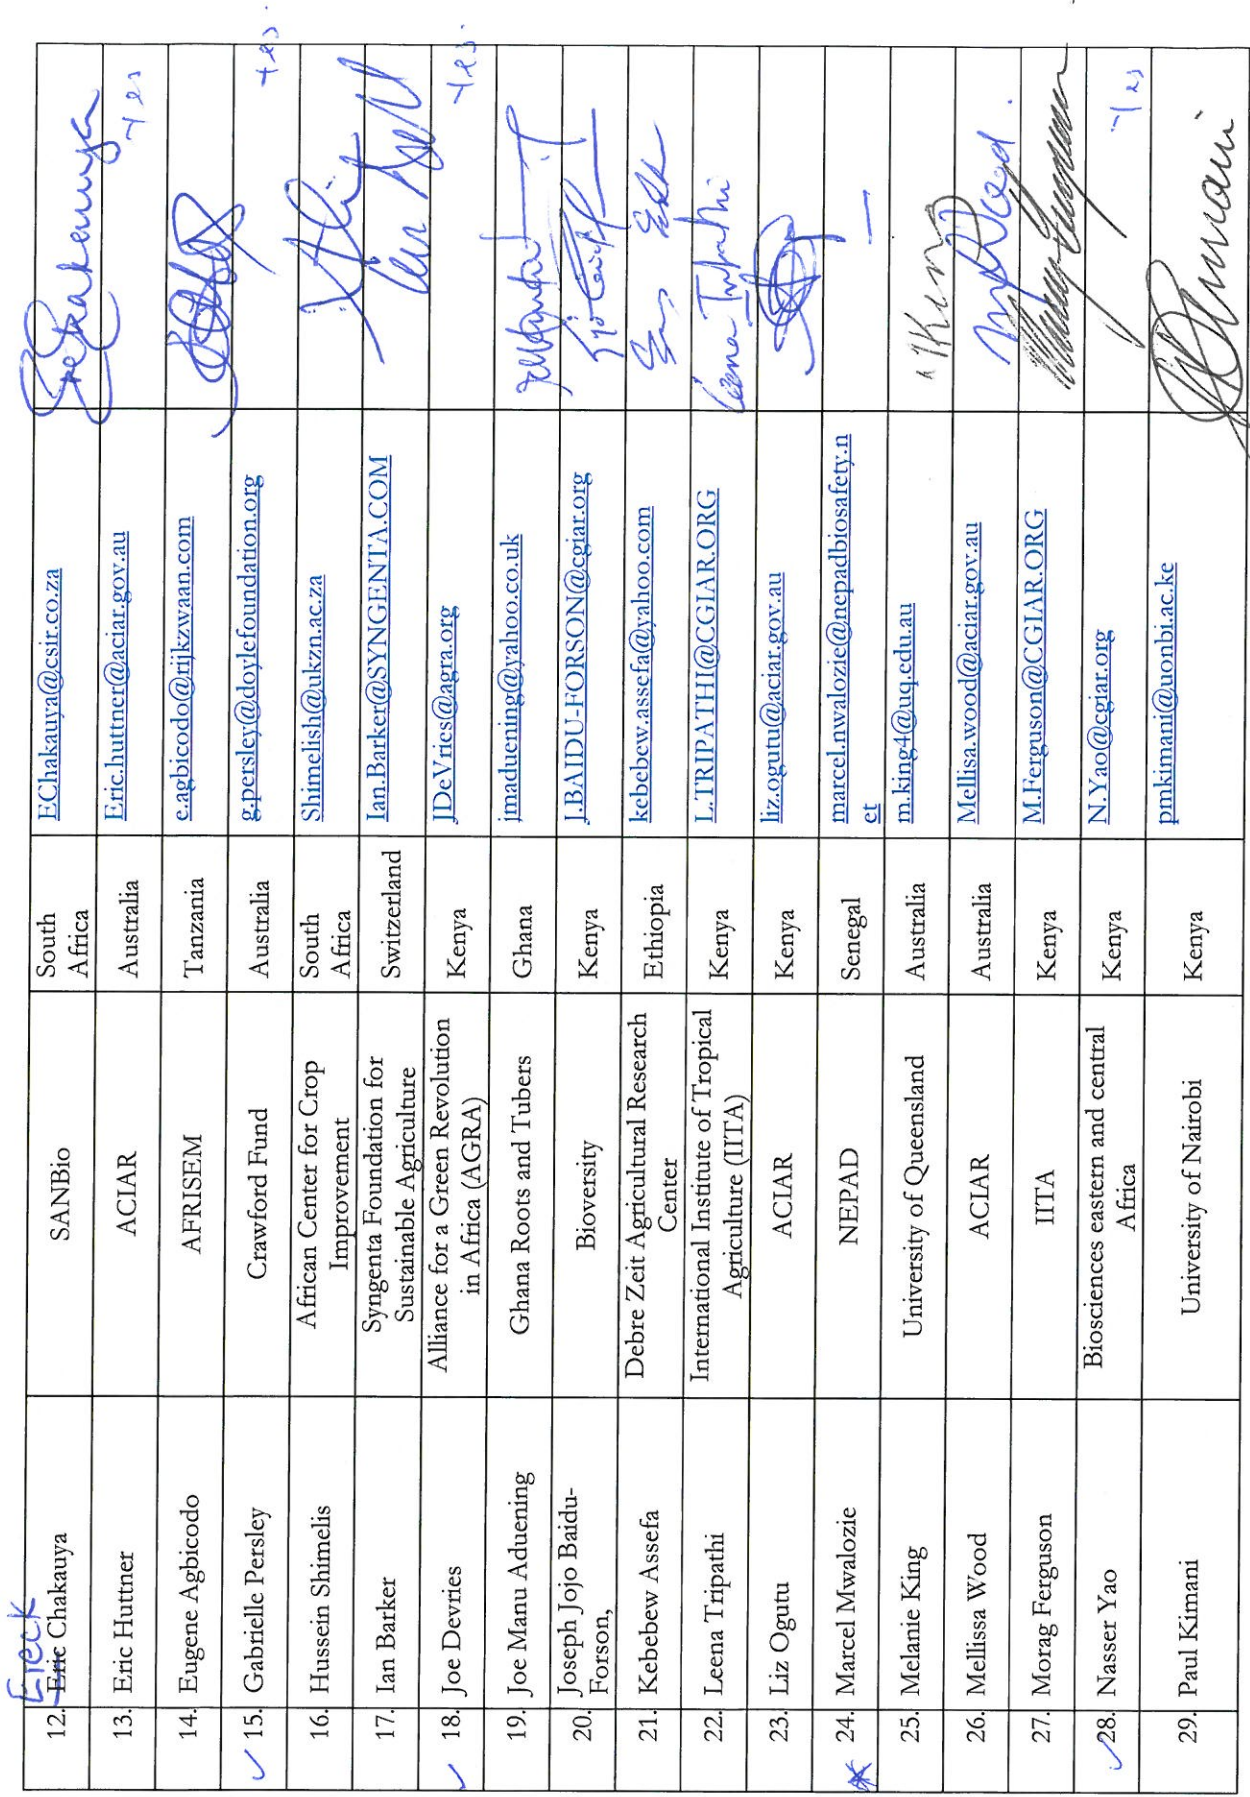 Ereck
12. Eric Chakauya SANBio South EChakauya@csir.co.za
Africa
13. Eric Huttner ACIAR Australia Eric.huttner@aciar.gov.au Yes
14. Eugene Agbicodo AFRISEM Tanzania e.agbicodo@rijkzwaan.com
✓ 15. Gabrielle Persley Crawford Fund Australia g.persley@doylefoundation.org Yes.
16. Hussein Shimelis African Center for Crop South Shimelish@ukzn.ac.za
Improvement Africa
17. Ian Barker Syngenta Foundation for Switzerland Ian.Barker@SYNGENTA.COM
Sustainable Agriculture
✓ 18. Joe Devries Alliance for a Green Revolution Kenya JDeVries@agra.org Yes.
in Africa (AGRA)
19. Joe Manu Aduening Ghana Roots and Tubers Ghana jmaduening@yahoo.co.uk
20. Joseph Jojo Baidu- Bioversity Kenya J.BAIDU-FORSON@cgiar.org
Forson,
21. Kebebew Assefa Debre Zeit Agricultural Research Ethiopia kebebew.assefa@yahoo.com
Center
22. Leena Tripathi International Institute of Tropical Kenya L.TRIPATHI@CGIAR.ORG Leena Tripathi
Agriculture (IITA)
23. Liz Ogutu ACIAR Kenya liz.ogutu@aciar.gov.au
24. Marcel Mwalozie NEPAD Senegal marcel.nwalozie@nepadbiosafety.n —
et
25. Melanie King University of Queensland Australia m.king4@uq.edu.au MKing
26. Mellissa Wood ACIAR Australia Mellisa.wood@aciar.gov.au
27. Morag Ferguson IITA Kenya M.Ferguson@CGIAR.ORG
✓ 28. Nasser Yao Biosciences eastern and central Kenya N.Yao@cgiar.org Yes
Africa
29. Paul Kimani University of Nairobi Kenya pmkimani@uonbi.ac.ke